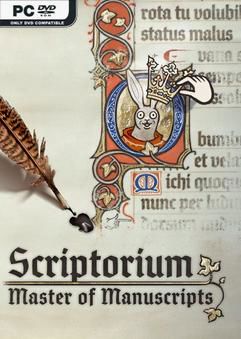 PC DVD
ROM
ONLY DVD COMPATIBLE
rota tu volubil
status malus
vana s
bumb
et vela
Michi quoqu
nunc per lud
dorsum nudu
Scriptorium
Master of Manuscripts